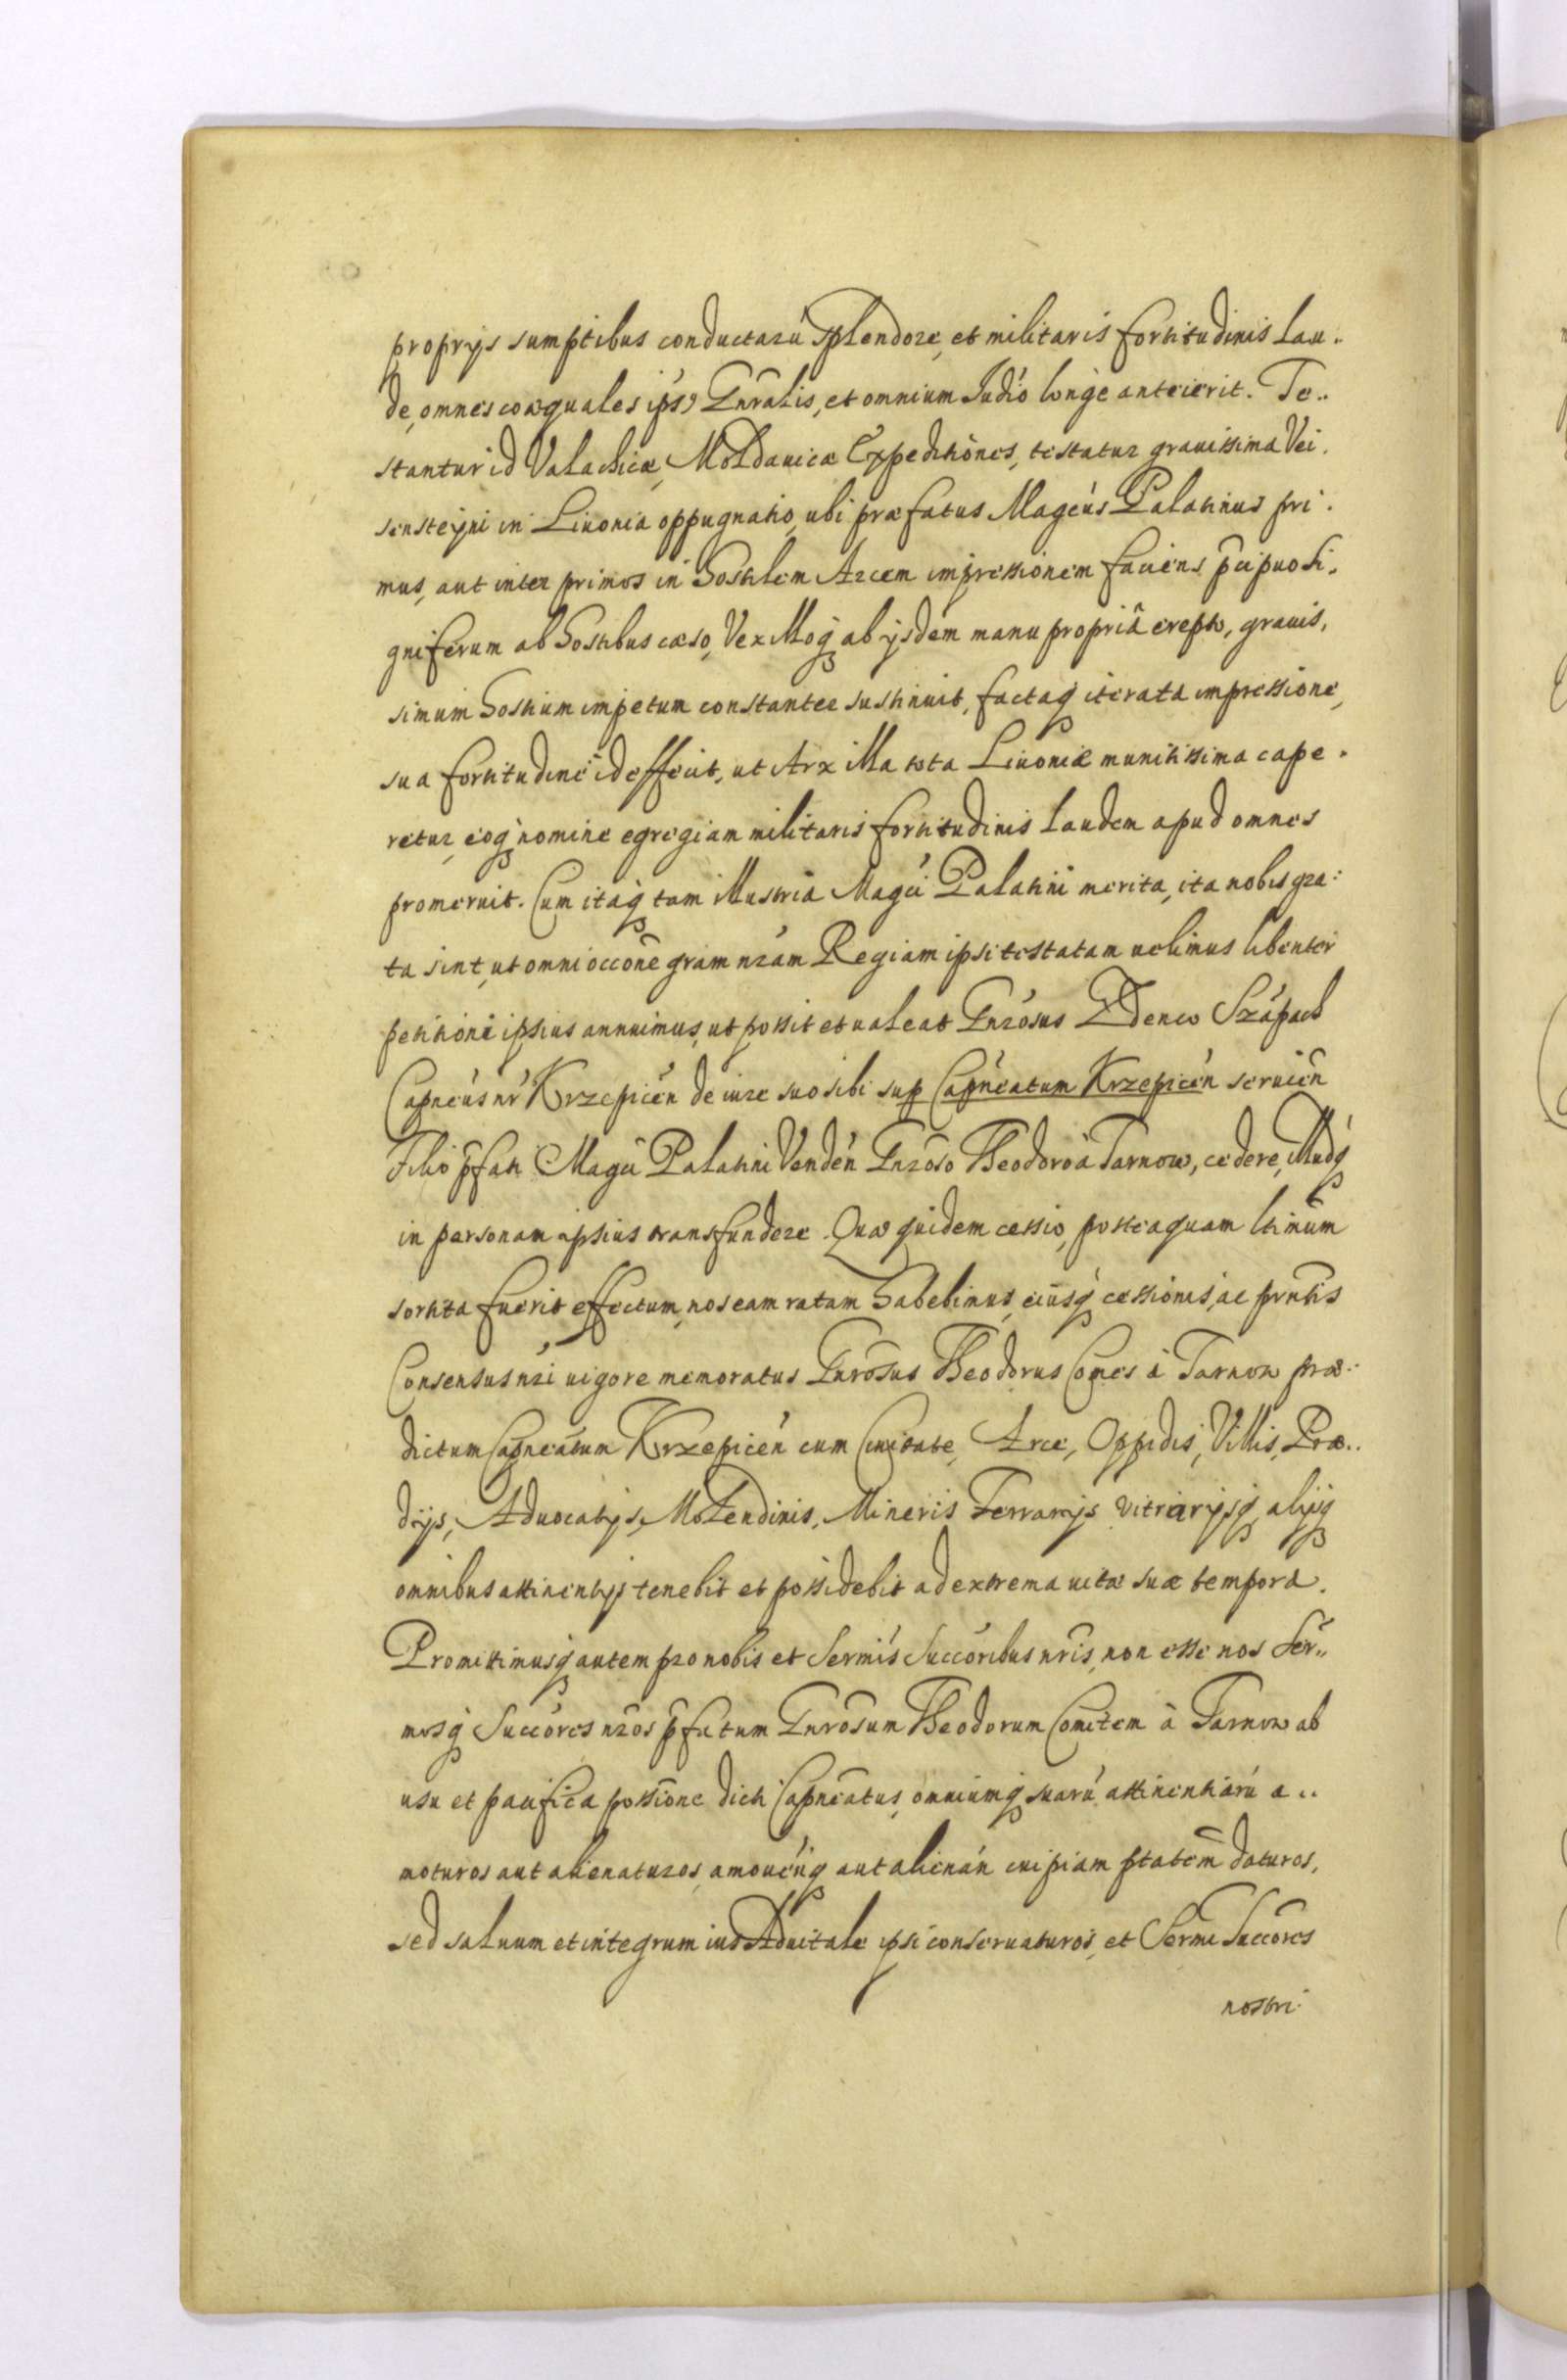 proprijs sumptibus conductarú splendore, et militaris fortitudinis lau..
de, omnes coæquales ips9 Gnralis, et omnium Judió longè anteierit. Te..
stantur id Valachicæ, Moldauicæ Expeditiones, testatur grauissima Vei.
sensteyni in Liuonia oppugnatio, ubi præfatus Magcus Palatinus pri.
mus, aut inter primos in hostilem Arcem impressionem faciens pcipuo si.
gniferum ab hostibus cæso, Vexilloq ab ijsdem manu propriâ erepto, grauis,
simum hostium impetum constanter sustinuit, factaq iterata impressione,
sua fortitudine id effecit, ut Arx illa tota Liuoniæ munitissima cape.
retur, eoq nomine egregiam militaris fortitudinis laudem apud omnes
promeruit. Cum itaq tam illustria Magci Palatini merita, ita nobis gra:
ta sint, ut omni occone gram nram Regiam ipsi testatam uelimus libenter
petitioni ipsius annuimus, ut possit et ualeat Gnrosus Zdenco Szápach
Capneus nr Krzepicen de iure suo sibi sup Capneatum Krzepicen seruien
Filio pfati Magci Palatini Venden Gnroso Theodoro à Tarnow, cedere, illudq
in personam ipsius transfundere. Quæ quidem cessio, posteaquam ltimum
sortita fuerit effectum, nos eam ratam habebimus, eiusq cessionis, ac prntis
Consensus nri uigore memoratus Gnrosus Theodorus Comes à Tarnow præ..
dictum Capneatum Krzepicen cum Ciuitate, Arce, Oppidis, Villis, Præ..
dijs, Aduocatijs, Molendinis, Mineris Ferrarijs vitriarijsq, alijsq
omnibus attinentijs tenebit et possidebit ad extrema uitæ suæ tempora.
Promittimusq autem pro nobis et Sermis Succoribus nris, non esse nos Ser..
mosq Succores nros pfatum Gnrosum Theodorum Comitem à Tarnow ab
usu et pacifica possione dicti Capneatus, omniumq suarú attinentiarú a..
moturos aut alienaturos, amouenq aut alienan cuipiam ptatem daturos,
sed saluum et integrum ius Aduitale ipsi conseruaturos, et Sermi Succores
nostri